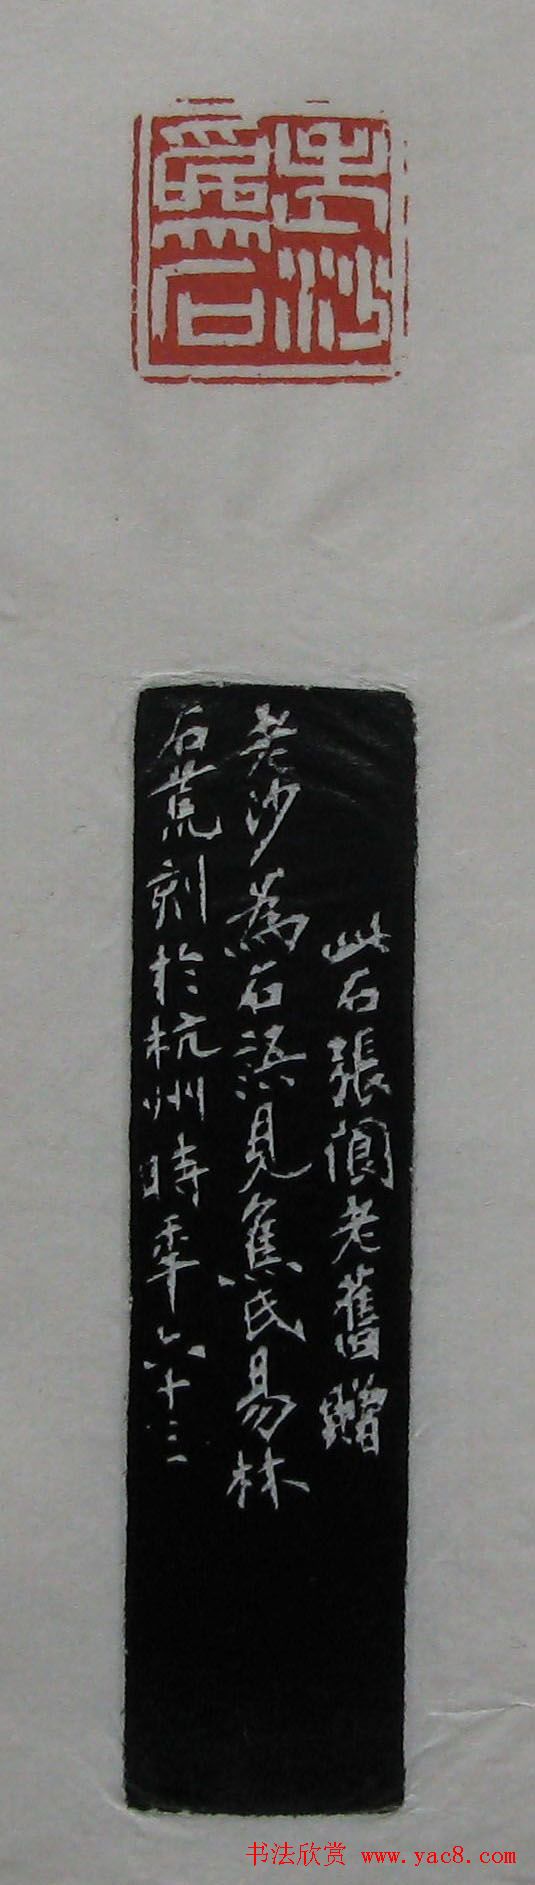 老沙
為石
此石張閬老舊贈
老沙為石語見焦氏易林
石荒刻於杭州時年六十三
书法欣赏 www.yac8.com